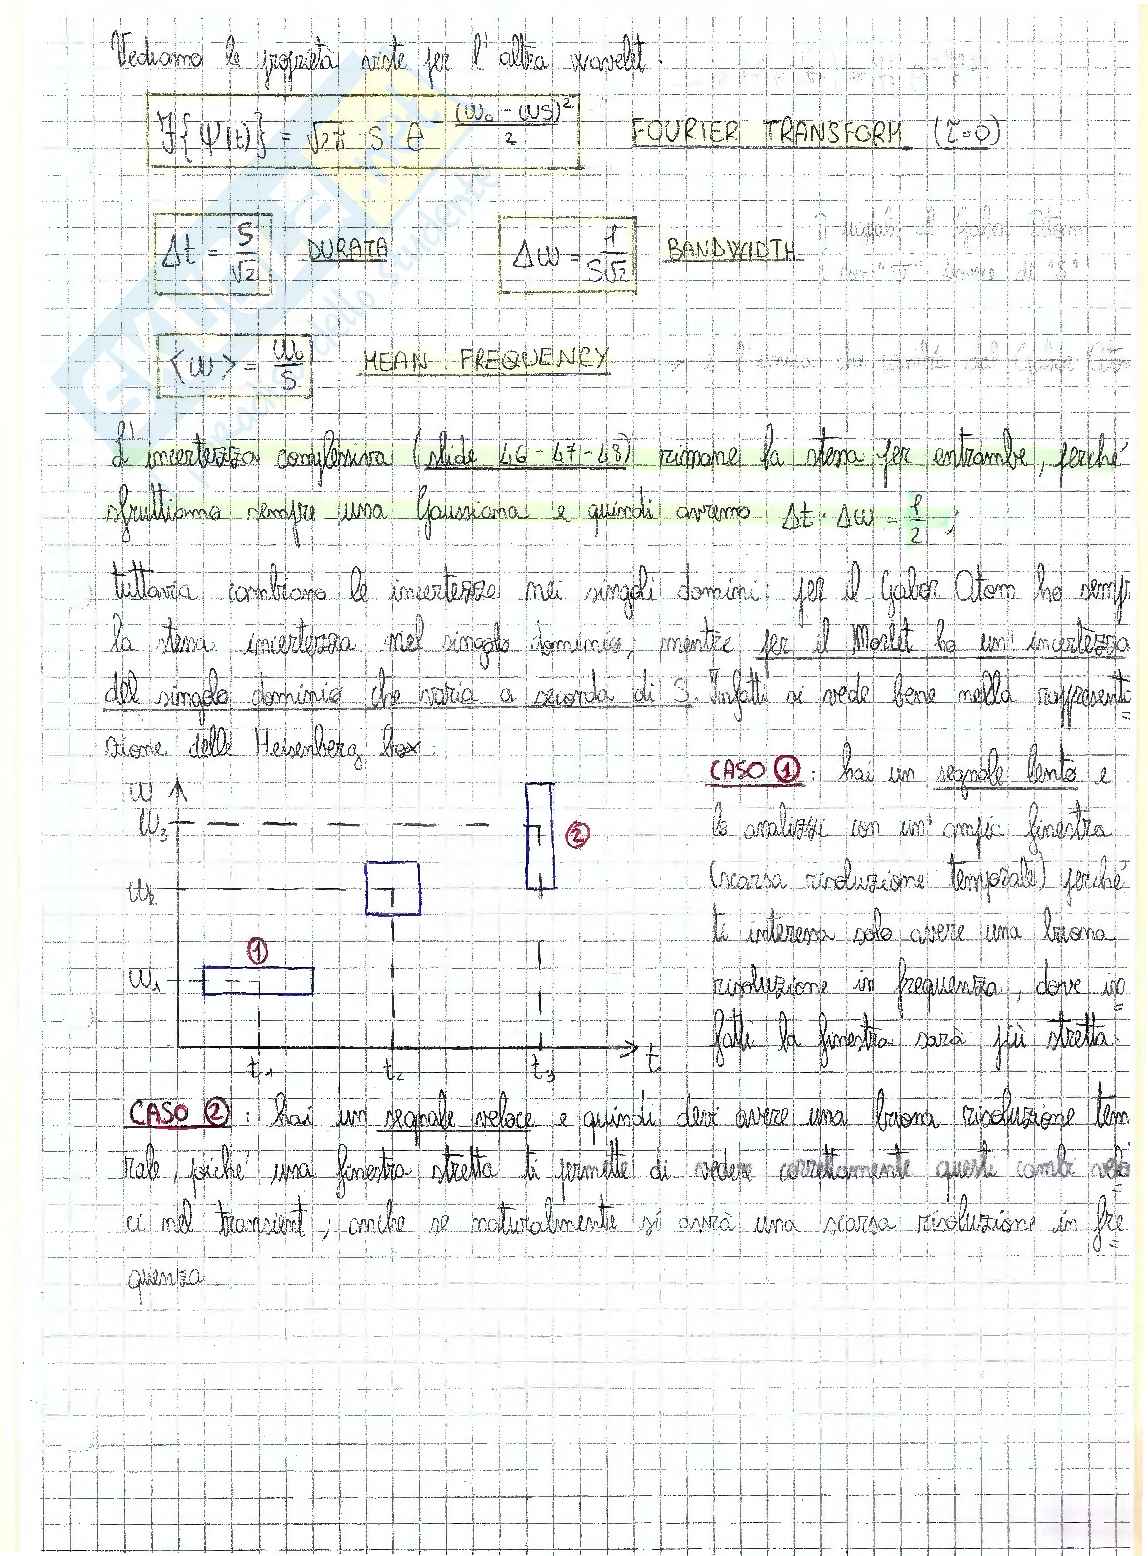 Vediamo le proprietà viste per l'altra wavelet:
F{Ψ(t)} = √2π s e^-(ω₀-ωs)²/2 FOURIER TRANSFORM (τ=0)
Δt = s/√2 DURATA Δω = 1/s√2 BANDWIDTH
<ω> = ω₀/s MEAN FREQUENCY
L'incertezza complessiva (slide 46-47-48) rimane la stessa per entrambe, perché
sfruttiamo sempre una Gaussiana e quindi avremo Δt · Δω = 1/2 ;
tuttavia cambiano le incertezze nei singoli domini: per il Gabor Atom ho semp
la stessa incertezza nel singolo dominio, mentre per il Morlet ho un'incertezza
del singolo dominio che varia a seconda di S. Infatti si vede bene nella rappresenta
zione delle Heisenberg box:
CASO ① : hai un segnale lento e
lo analizzi con un'ampia finestra
(scarsa risoluzione temporale) perché
ti interessa solo avere una buona
risoluzione in frequenza, dove in
fatti la finestra sarà più stretta.
ω
ω₃
②
ω₂
①
ω₁
t₁ t₂ t₃ t
CASO ② : hai un segnale veloce e quindi devi avere una buona risoluzione tem
rale, poiché una finestra stretta ti permette di vedere correttamente questi cambi velo
ci nel transient, anche se naturalmente si avrà una scarsa risoluzione in fre
quenza